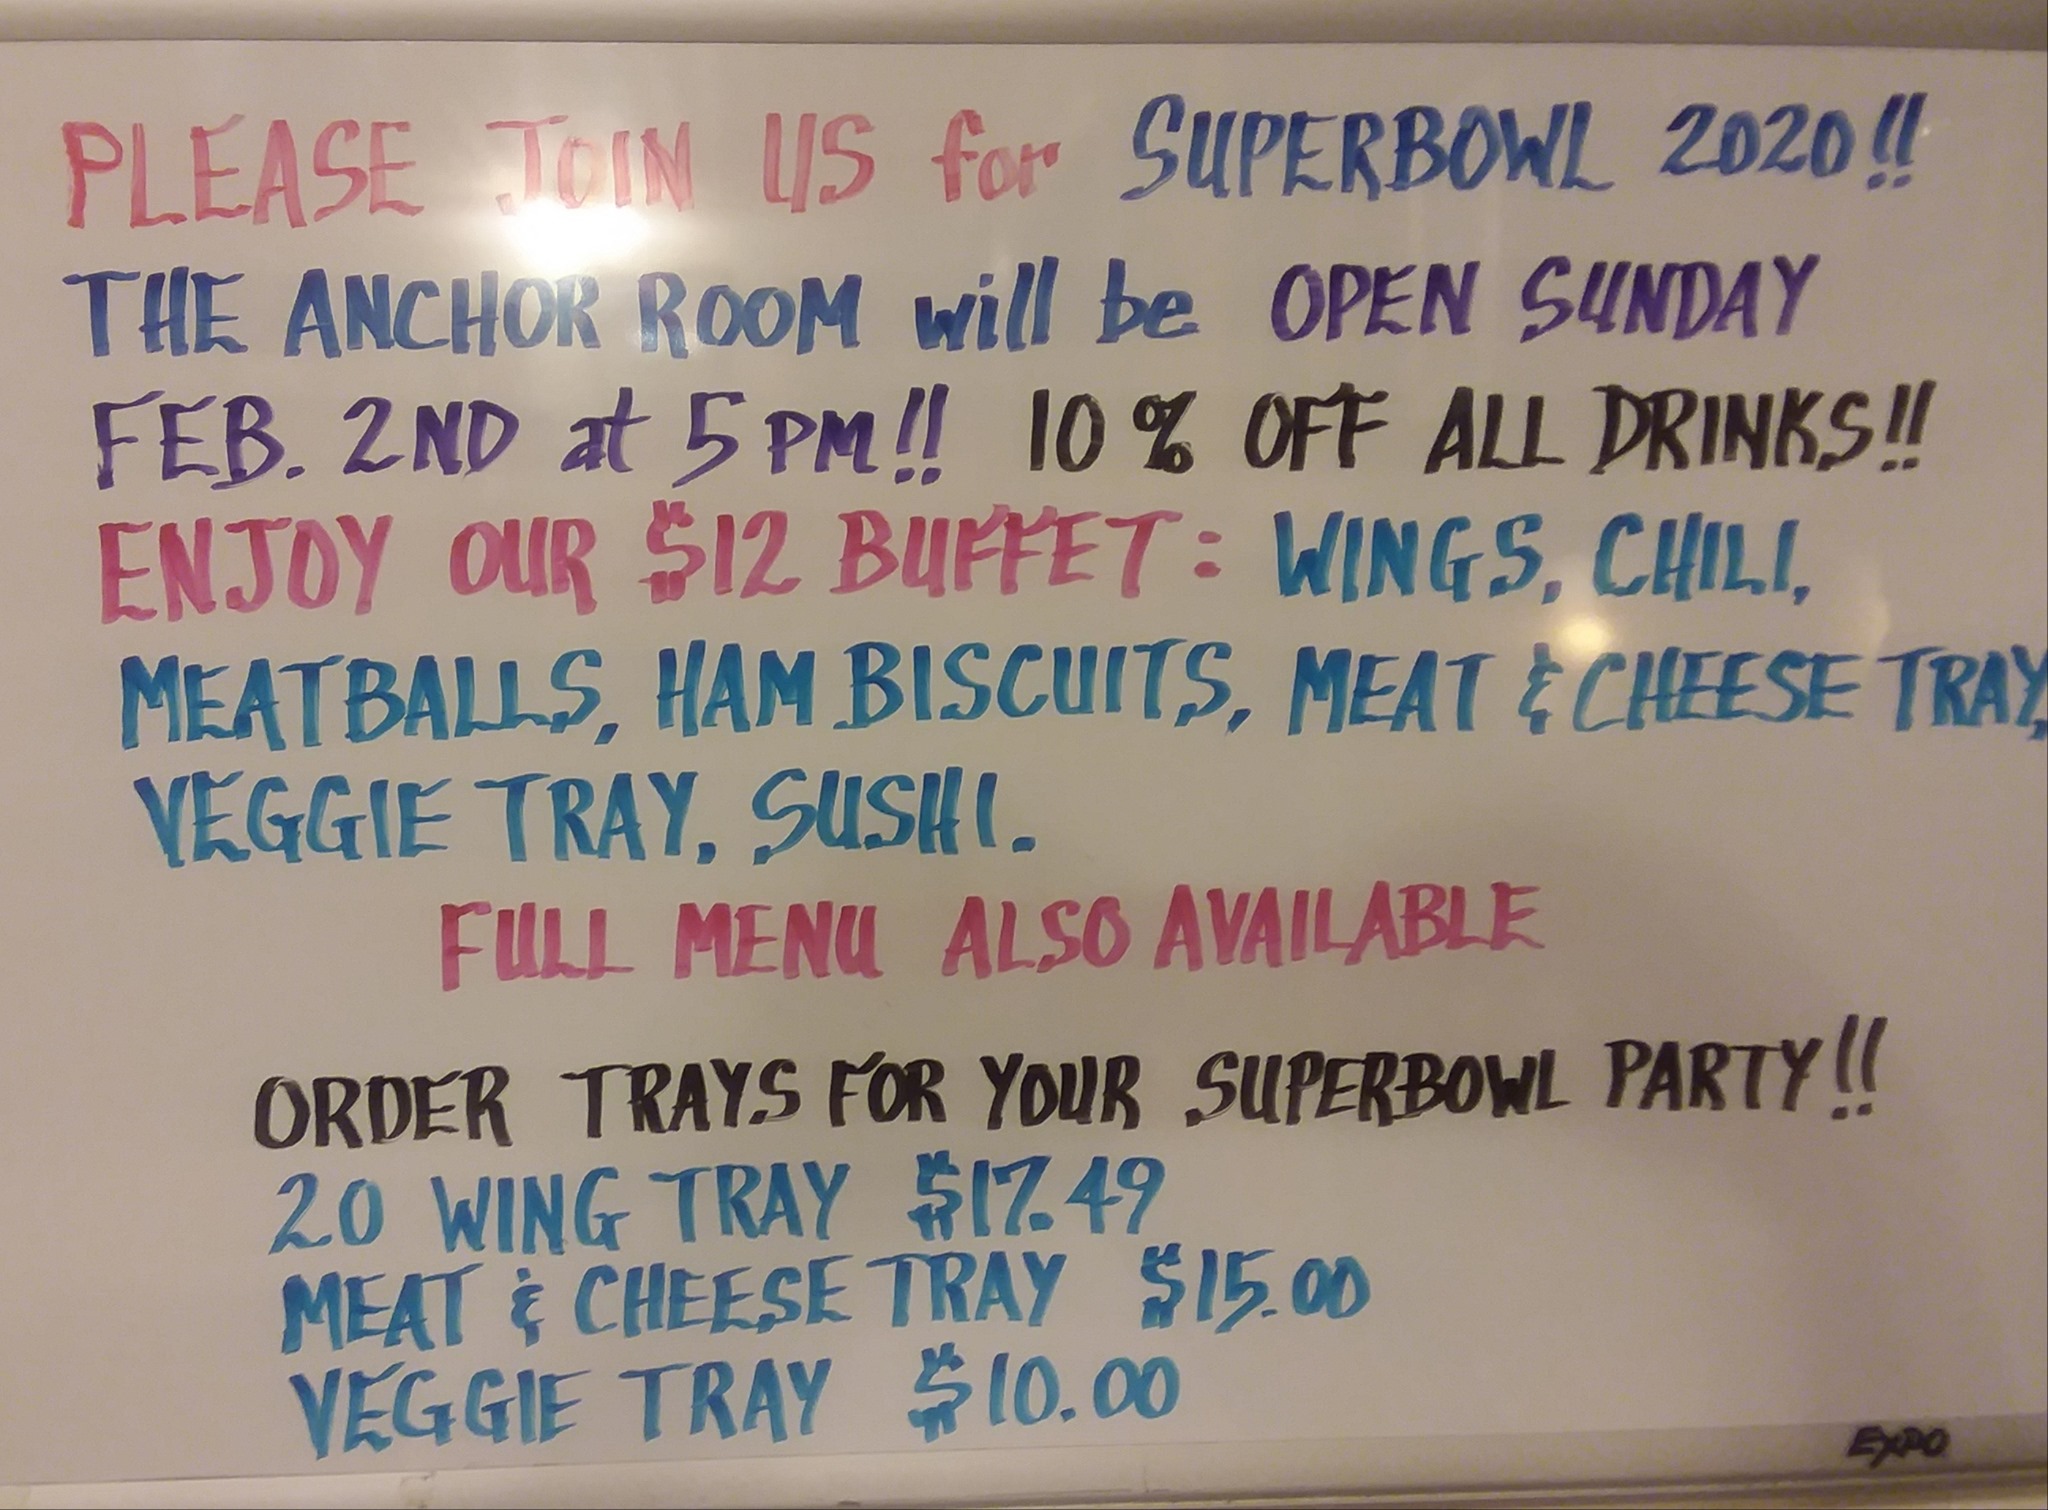 PLEASE JOIN US for SUPERBOWL 2020!!
THE ANCHOR ROOM will be OPEN SUNDAY
FEB. 2ND at 5 PM!! 10% OFF ALL DRINKS!!
ENJOY OUR $12 BUFFET: WINGS, CHILI,
MEATBALLS, HAM BISCUITS, MEAT & CHEESE TRAY,
VEGGIE TRAY, SUSHI.
FULL MENU ALSO AVAILABLE
ORDER TRAYS FOR YOUR SUPERBOWL PARTY!!
20 WING TRAY $17.49
MEAT & CHEESE TRAY $15.00
VEGGIE TRAY $10.00
EXPO